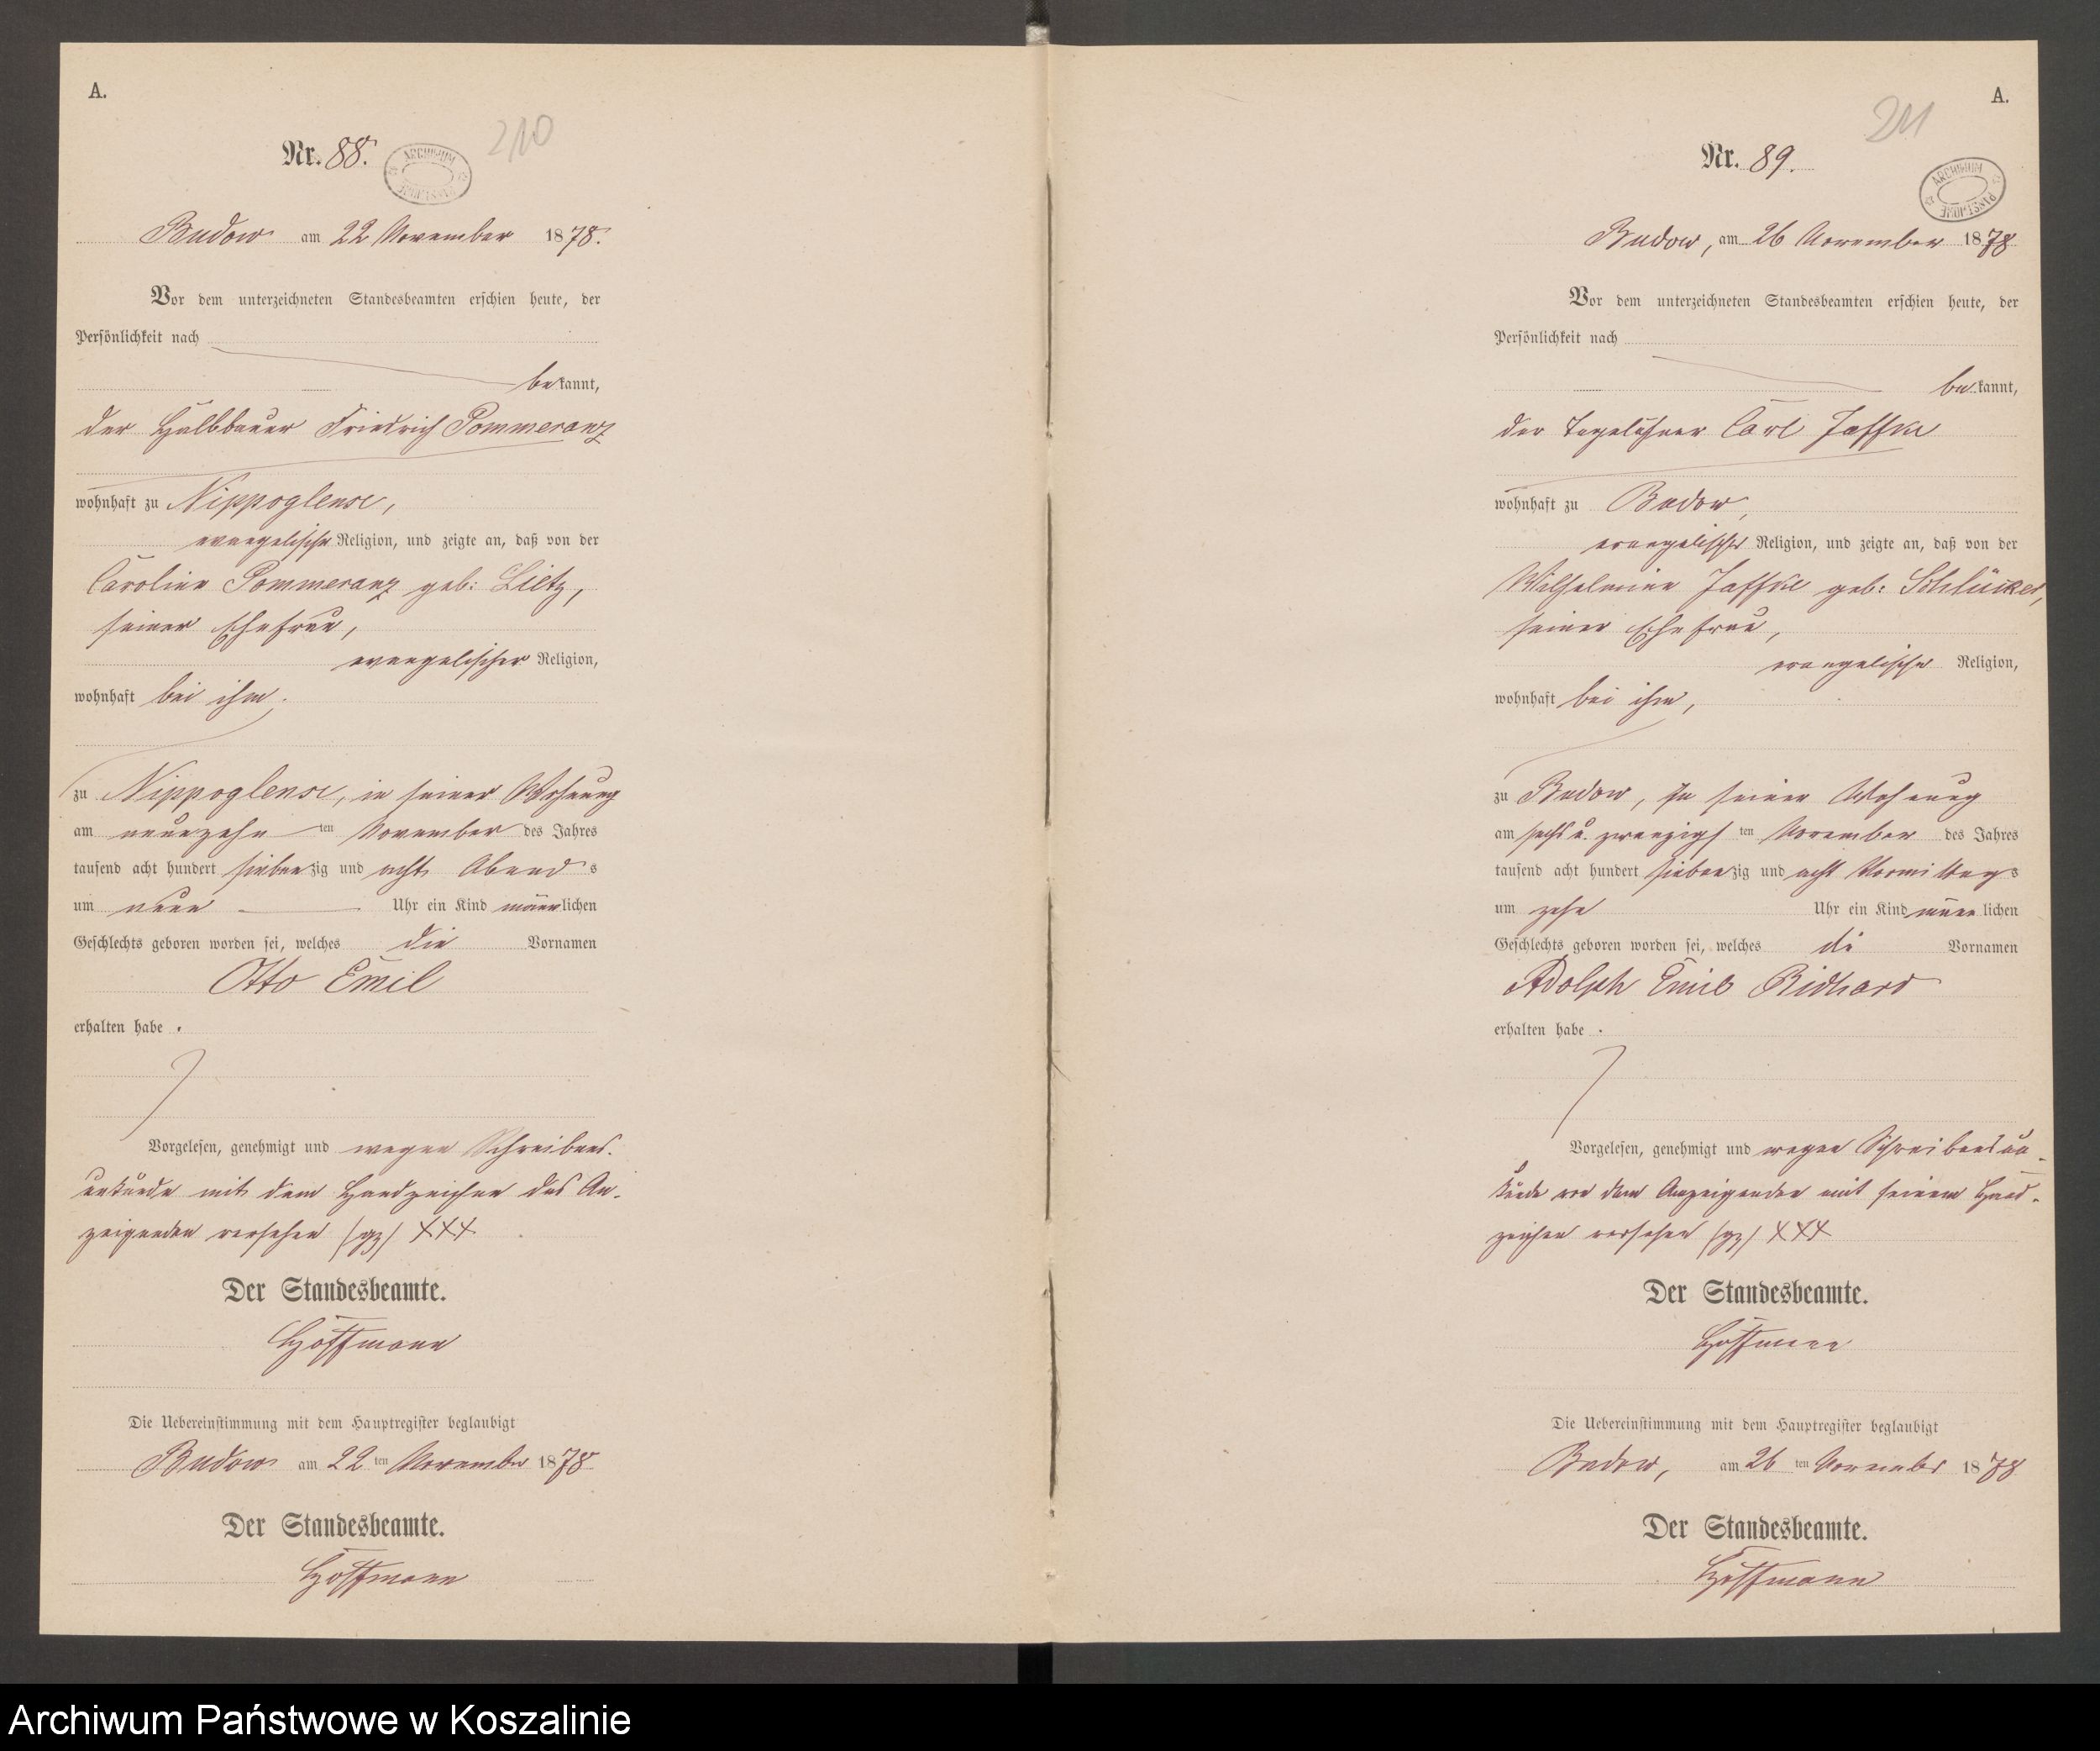 A.
Nr. 88.
210
ARCHIWUM PAŃSTWOWE
Budow am 22 November 1878.
Vor dem unterzeichneten Standesbeamten erschien heute, der
Persönlichkeit nach
bekannt,
der Halbbauer Friedrich Pommeranz
wohnhaft zu Nippoglense,
evangelischer Religion, und zeigte an, daß von der
Caroline Pommeranz geb: Lietz,
seiner Ehefrau,
evangelischer Religion,
wohnhaft bei ihm,
zu Nippoglense, in seiner Wohnung
am neunzehn ten November des Jahres
tausend acht hundert siebenzig und acht Abends
um neun Uhr ein Kind männlichen
Geschlechts geboren worden sei, welches die Vornamen
Otto Emil
erhalten habe.
Vorgelesen, genehmigt und wegen Schreibens-
unkunde mit dem Handzeichen des An-
zeigenden versehen (gz) XXX
Der Standesbeamte.
Hoffmann
Die Uebereinstimmung mit dem Hauptregister beglaubigt
Budow am 22 ten November 1878
Der Standesbeamte.
Hoffmann
A.
Nr. 89.
211
ARCHIWUM PAŃSTWOWE
Budow, am 26 November 1878
Vor dem unterzeichneten Standesbeamten erschien heute, der
Persönlichkeit nach
bekannt,
der Tagelöhner Carl Jaffke
wohnhaft zu Budow,
evangelischer Religion, und zeigte an, daß von der
Wilhelmine Jaffke geb: Schlücker,
seiner Ehefrau,
evangelischer Religion,
wohnhaft bei ihm,
zu Budow, in seiner Wohnung
am sechs u. zwanzigs ten November des Jahres
tausend acht hundert siebenzig und acht Vormittags
um zehn Uhr ein Kind männlichen
Geschlechts geboren worden sei, welches die Vornamen
Adolph Emil Richard
erhalten habe.
Vorgelesen, genehmigt und wegen Schreibensun-
kunde von dem Anzeigenden mit seinem Hand-
zeichen versehen (gz) XXX
Der Standesbeamte.
Hoffmann
Die Uebereinstimmung mit dem Hauptregister beglaubigt
Budow, am 26 ten November 1878
Der Standesbeamte.
Hoffmann
Archiwum Państwowe w Koszalinie